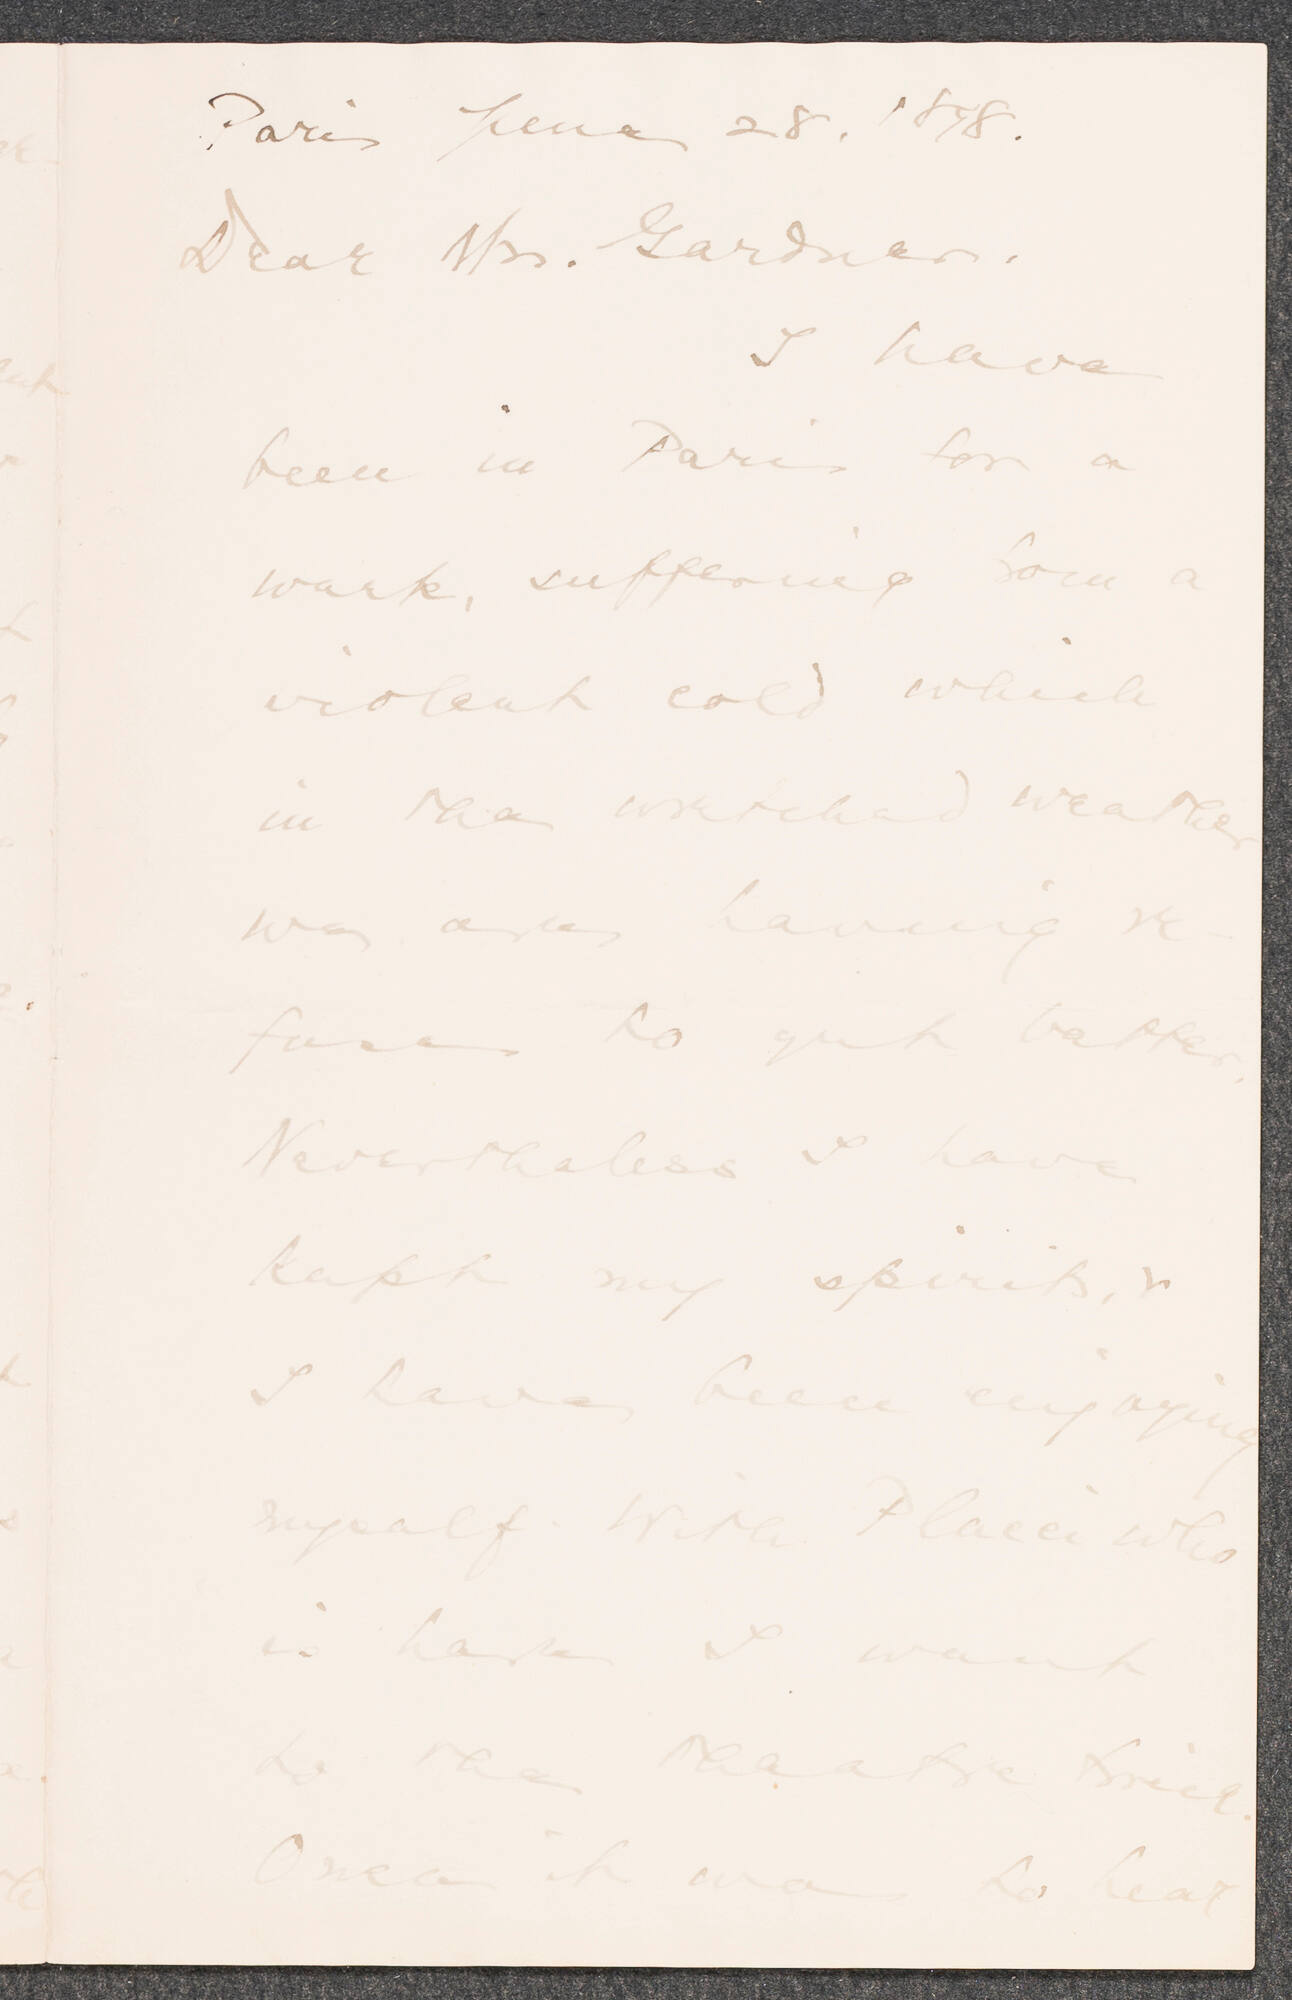 Paris June 28. 1898.
Dear Mrs. Gardner.
I have
been in Paris for a
week, suffering from a
violent cold which
in the wretched weather
we are having re-
fuses to get better.
Nevertheless I have
kept my spirits, &
I have been enjoying
myself. With Placci who
is here I went
to the theatre twice.
Once it was to hear